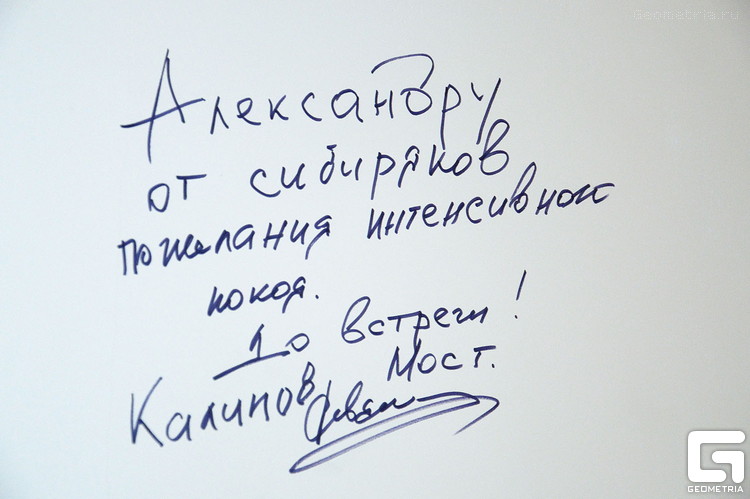 Geometria.ru
Александру
от сибиряков
пожелания интенсивного
покоя.
До встречи!
Калинов Мост.
GEOMETRIA